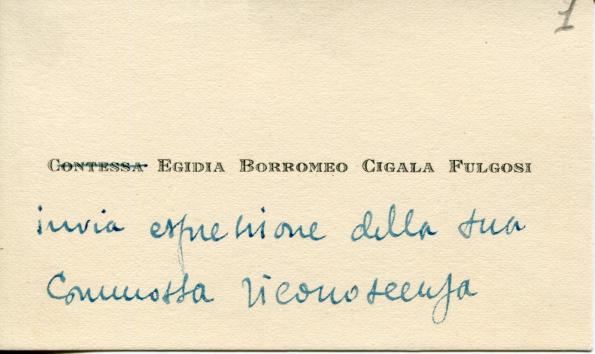 1
Contessa Egidia Borromeo Cigala Fulgosi
invia espressione della sua
Commossa riconoscenza